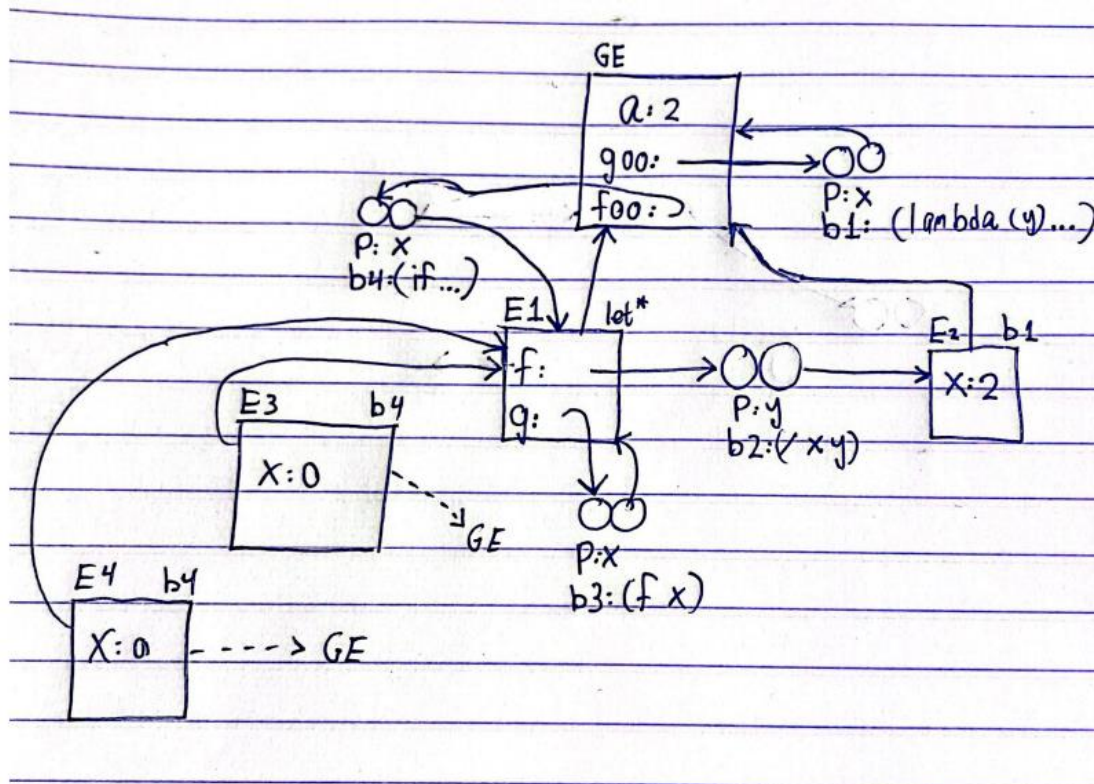 GE
a: 2
goo:
foo:
P: X
b1: (lambda (y)...)
P: X
b4: (if ...)
E1 let*
f:
g:
P: y
b2: (/ x y)
E2 b1
X: 2
P: X
b3: (f x)
E3 b4
X: 0
GE
E4 b4
X: a
GE